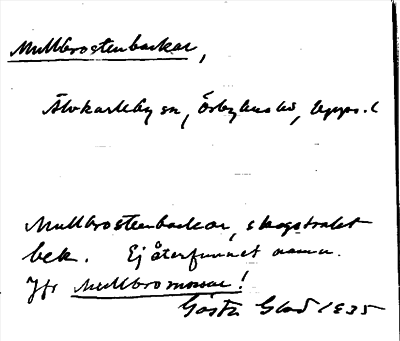 Mullbrostenbackar,
Älvkarleby sn, Örbyhus hd, Upps. l
Mullbrostenbackar, skogstrakt
bek. Ej återfunnet namn.
Jfr Mullbromossar!
Gösta Glad 1935